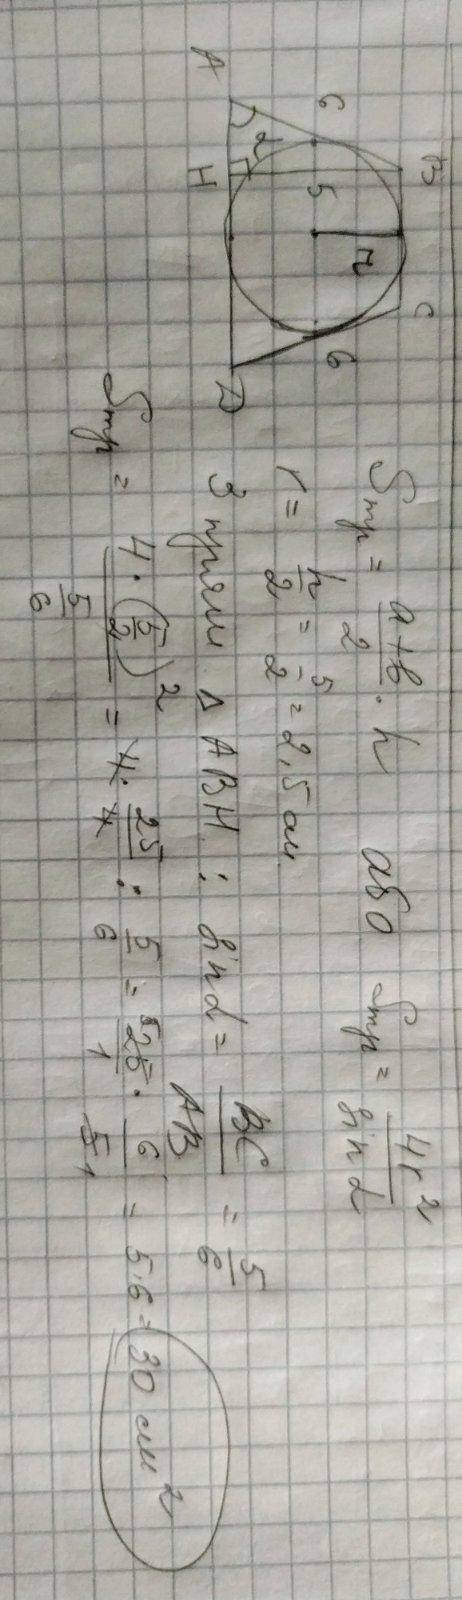 A B C D H
6 5 6 r α
Sтр = (a+b)/2 · h або Sтр = 4r²/sin α
r = h/2 = 5/2 = 2,5 см
З прям. Δ ABH : sin α = BC/AB = 5/6
Sтр = 4·(5/2)²/(5/6) = 4·25/4 : 5/6 = 25/1 · 6/5 = 5·6 = 30 см²